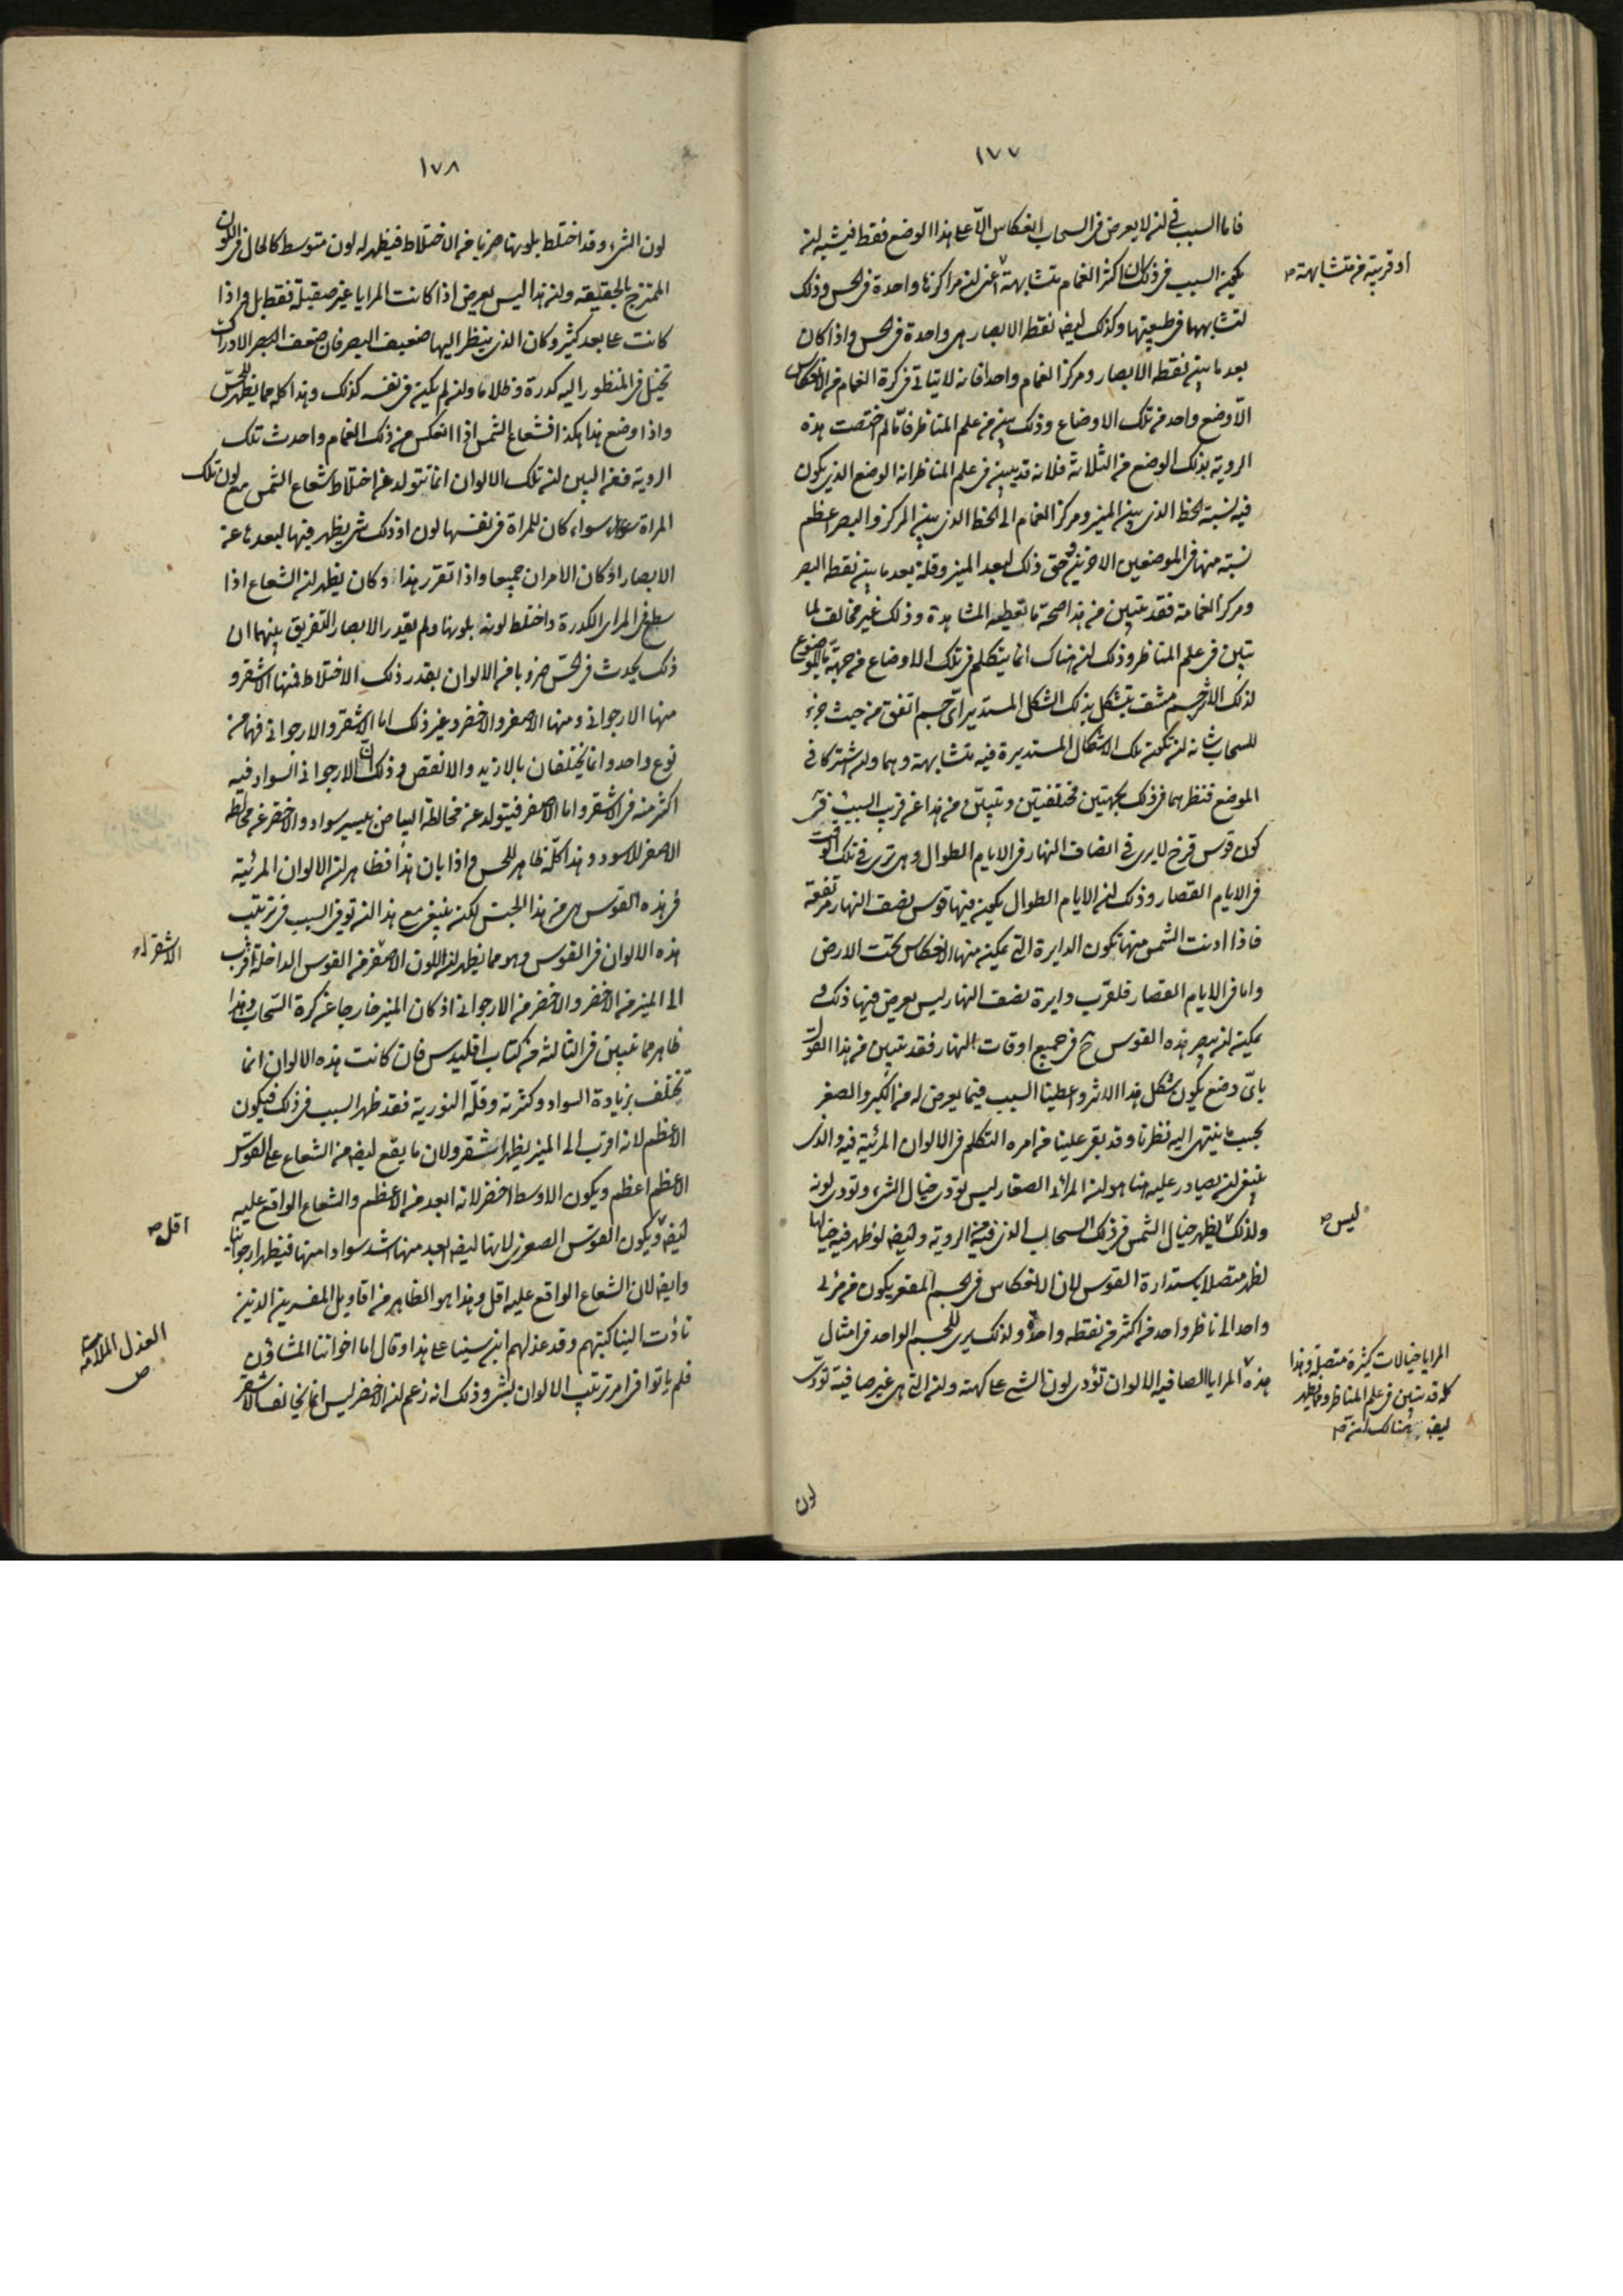 ١٧٧
فاما السبب فى ان لا يعرض فى السحاب انعكاس الّا على هذا الوضع فقط فيشبه ان
يكون السبب فى ذلك ان اكثر الغمام متشابهة اعنى ان مراكزها واحدة فى الحس وذلك
او قريبة من متشابهة صح
لتشابهها فى طبيعتها وكذلك ايضا نقطة الابصار هى واحدة فى الحس واذا كان
بعد ما بين نقطة الابصار ومركز الغمام واحدا فانه لا يتاتى فى كرة الغمام من الانعكاس
الّا وضع واحد من تلك الاوضاع وذلك بين من علم المناظر فامّا لم اختصت هذه
الروية بذلك الوضع من الثلاثة فلانه قد يتبين فى علم المناظر انه الوضع الذى يكون
فيه نسبة الخط الذى بين المنير ومركز الغمام الى الخط الذى بين المركز والبصر اعظم
نسبة منها فى الموضعين الاخرين وحق ذلك لبعد المنير وقلة بعد ما بين نقطة البصر
ومركز الغمامة فقد تبين من هذا صحة ما تعطيه المشاهدة وذلك غير مخالف لما
تبين فى علم المناظر وذلك ان هناك انما يتكلم فى تلك الاوضاع من جهة ما الموضوع
لذلك جسم مشف يتشكل بذلك الشكل المستدير اىّ جسم اتفق من حيث جزء
للسحاب شانه ان تكون تلك الاشكال المستديرة فيه متشابهة وهما وان اشتركا فى
الموضع فنظرهما فى ذلك بجهتين مختلفتين ويتبيّن من هذا عن قرب السبب فى
كون قوس قزح لا يرى فى انصاف النهار فى الايام الطوال وهى ترى فى تلك الوقت
فى الايام القصار وذلك ان الايام الطوال يكون فيها قوس نصف النهار مرتفعة
فاذا ادنت الشمس منها تكون الدايرة التى يمكن منها الانعكاس تحت الارض
واما فى الايام القصار فلقرب دايرة نصف النهار ليس يعرض فيها ذلك و
يمكن ان يبصر هذه القوس ح فى جميع اوقات النهار فقد تبين من هذا القول
باىّ وضع يكون شكل هذا الاثر واعطينا السبب فيما يعرض له من الكبر والصغر
بحسب ما ينتهى اليه نظرنا وقد بقى علينا من امره التكلم فى الالوان المرئية فيه والذى
ينبغى ان يصادر عليه هنا هو ان المرائى الصغار ليس تودى خيال الشىء وتودى لونه
ولذلك يظهر خيال الشمس فى ذلك السحاب الذى فيه الروية وايضا لو ظهر فيه خيالها
ليس صح
لظهر متصلا باستدارة القوس لان الانعكاس فى الجسم المقعر يكون من مرئى
واحد الى ناظر واحد من اكثر من نقطة واحدة ولذلك يرى للجسم الواحد فى امثال
هذه المرايا الصافيه الالوان تؤدى لون الشىء على كهنه وان التى هى غير صافية تؤدى
المرايا خيالات كثيرة متصلة وهذا
كله قد تبين فى علم المناظر ومما يظهر
ايضا هنالك ان صح
لون
١٧٨
لون الشىء وقد اختلط بلونها ضربا من الاختلاط فيظهر له لون متوسط كالحال فى اللون
الممتزج بالحقيقه وان هذا ليس يعرض اذا كانت المرايا غير صقيلة فقط بل واذا
كانت على بعد كثير وكان الذى ينظر اليها ضعيف البصر فان ضعف البصر الادراك
تخيل فى المنظور اليه كدرة وظلاما وان لم يكن فى نفسه كذلك وهذا كله مما يظهر للحسّ
واذا وضع هذا هكذا فشعاع الشمس اذا انعكس من ذلك الغمام واحدث تلك
الروية فمن البين ان تلك الالوان انما تتولد عن اختلاط شعاع الشمس مع لون تلك
المراة سواء كان للمراة فى نفسها لون او ذلك شىء يظهر فيها لبعدها عن
الابصار اذ كان الامران جميعا واذا تقرر هذا وكان يظهر ان الشعاع اذا
سطع فى المراى الكدرة واختلط لونه بلونها ولم يقدر الابصار التفريق بينهما ان
ذلك يحدث فى الحسّ ضروبا من الالوان بقدر ذلك الاختلاط فمنها الاشقر و
منها الارجوانى ومنها الاصفر والاخضر وغير ذلك اما الاشقر والارجوانى فهما من
نوع واحد وانما يختلفان بالازيد والانقص وذلك ان الارجوانى السواد فيه
اكثر منه فى الاشقر واما الاصفر فيتولد عن مخالطة البياض بيسير سواد والاخضر عن مخالطة
الاصفر للاسود وهذا كلّه ظاهر للحس واذا بان هذا فظاهر ان الالوان المرئية
فى هذه القوس هى من هذا الجنس لكن ينبغى مع هذا ان توفى السبب فى ترتيب
هذه الالوان فى القوس وهو مما يظهر ان اللون الاصفر من القوس الداخلة اقرب
الاشقر
الى المنير من الاخضر والاخضر من الارجوانى اذ كان المنير خارجا عن كرة السحاب وهذا
ظاهر مما تبين فى الثالثة من كتاب اقليدس فان كانت هذه الالوان انما
تختلف بزيادة السواد وكثرته وقلّة النورية فقد ظهر السبب فى ذلك فيكون
الاعظم لانه اقرب الى المنير يظهر اشقر ولان ما يقع ايضا من الشعاع على القوس
الاعظم اعظم ويكون الاوسط اخضر لانه ابعد من الاعظم والشعاع الواقع عليه
ايضا ويكون القوس الصغرى لانها ايضا ابعد منها اشد سوادا منها فيظهر ارجوانيا
اقل صح
وايضا لان الشعاع الواقع عليه اقل وهذا هو الظاهر من اقاويل المفسرين الذين
تأدت الينا كتبهم وقد عذلهم ابن سينا على هذا وقال اما اخواننا المشاؤن
العذل الملامة
ص
فلم ياتوا فى امر ترتيب الالوان بشىء وذلك انه زعم ان الاخضر ليس انما يخالف الاشقر